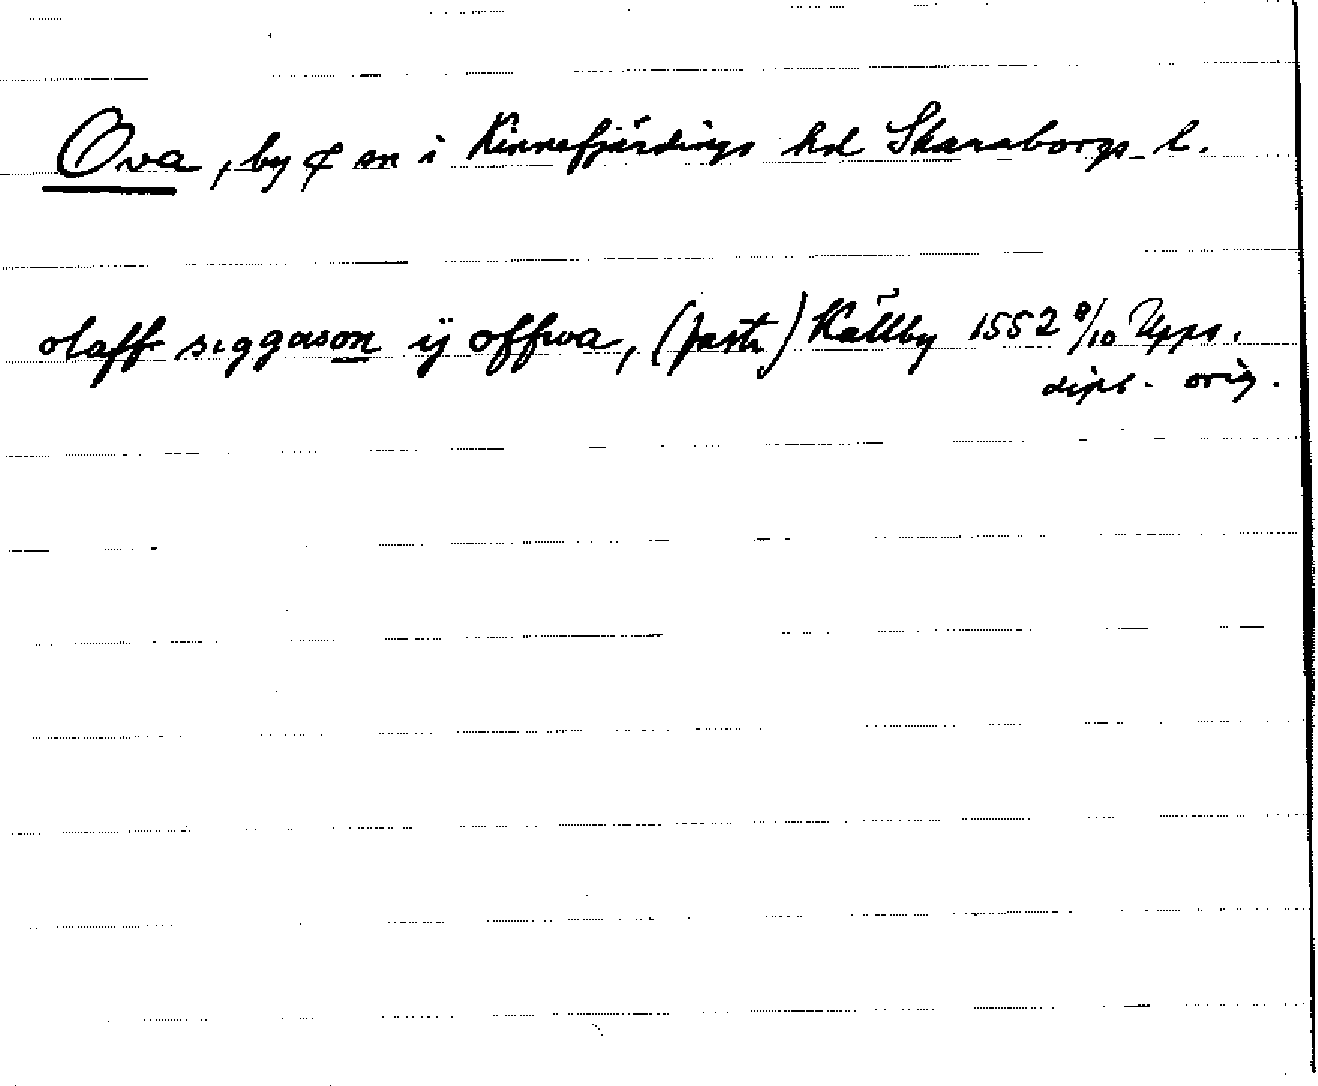 Ova, by ¢ sn i Kinnefjärdings hd Skaraborgs l.
olaff siggason ÿ offwa, (fastr) Källby 1552 9/10 Upps.
dipl. orig.